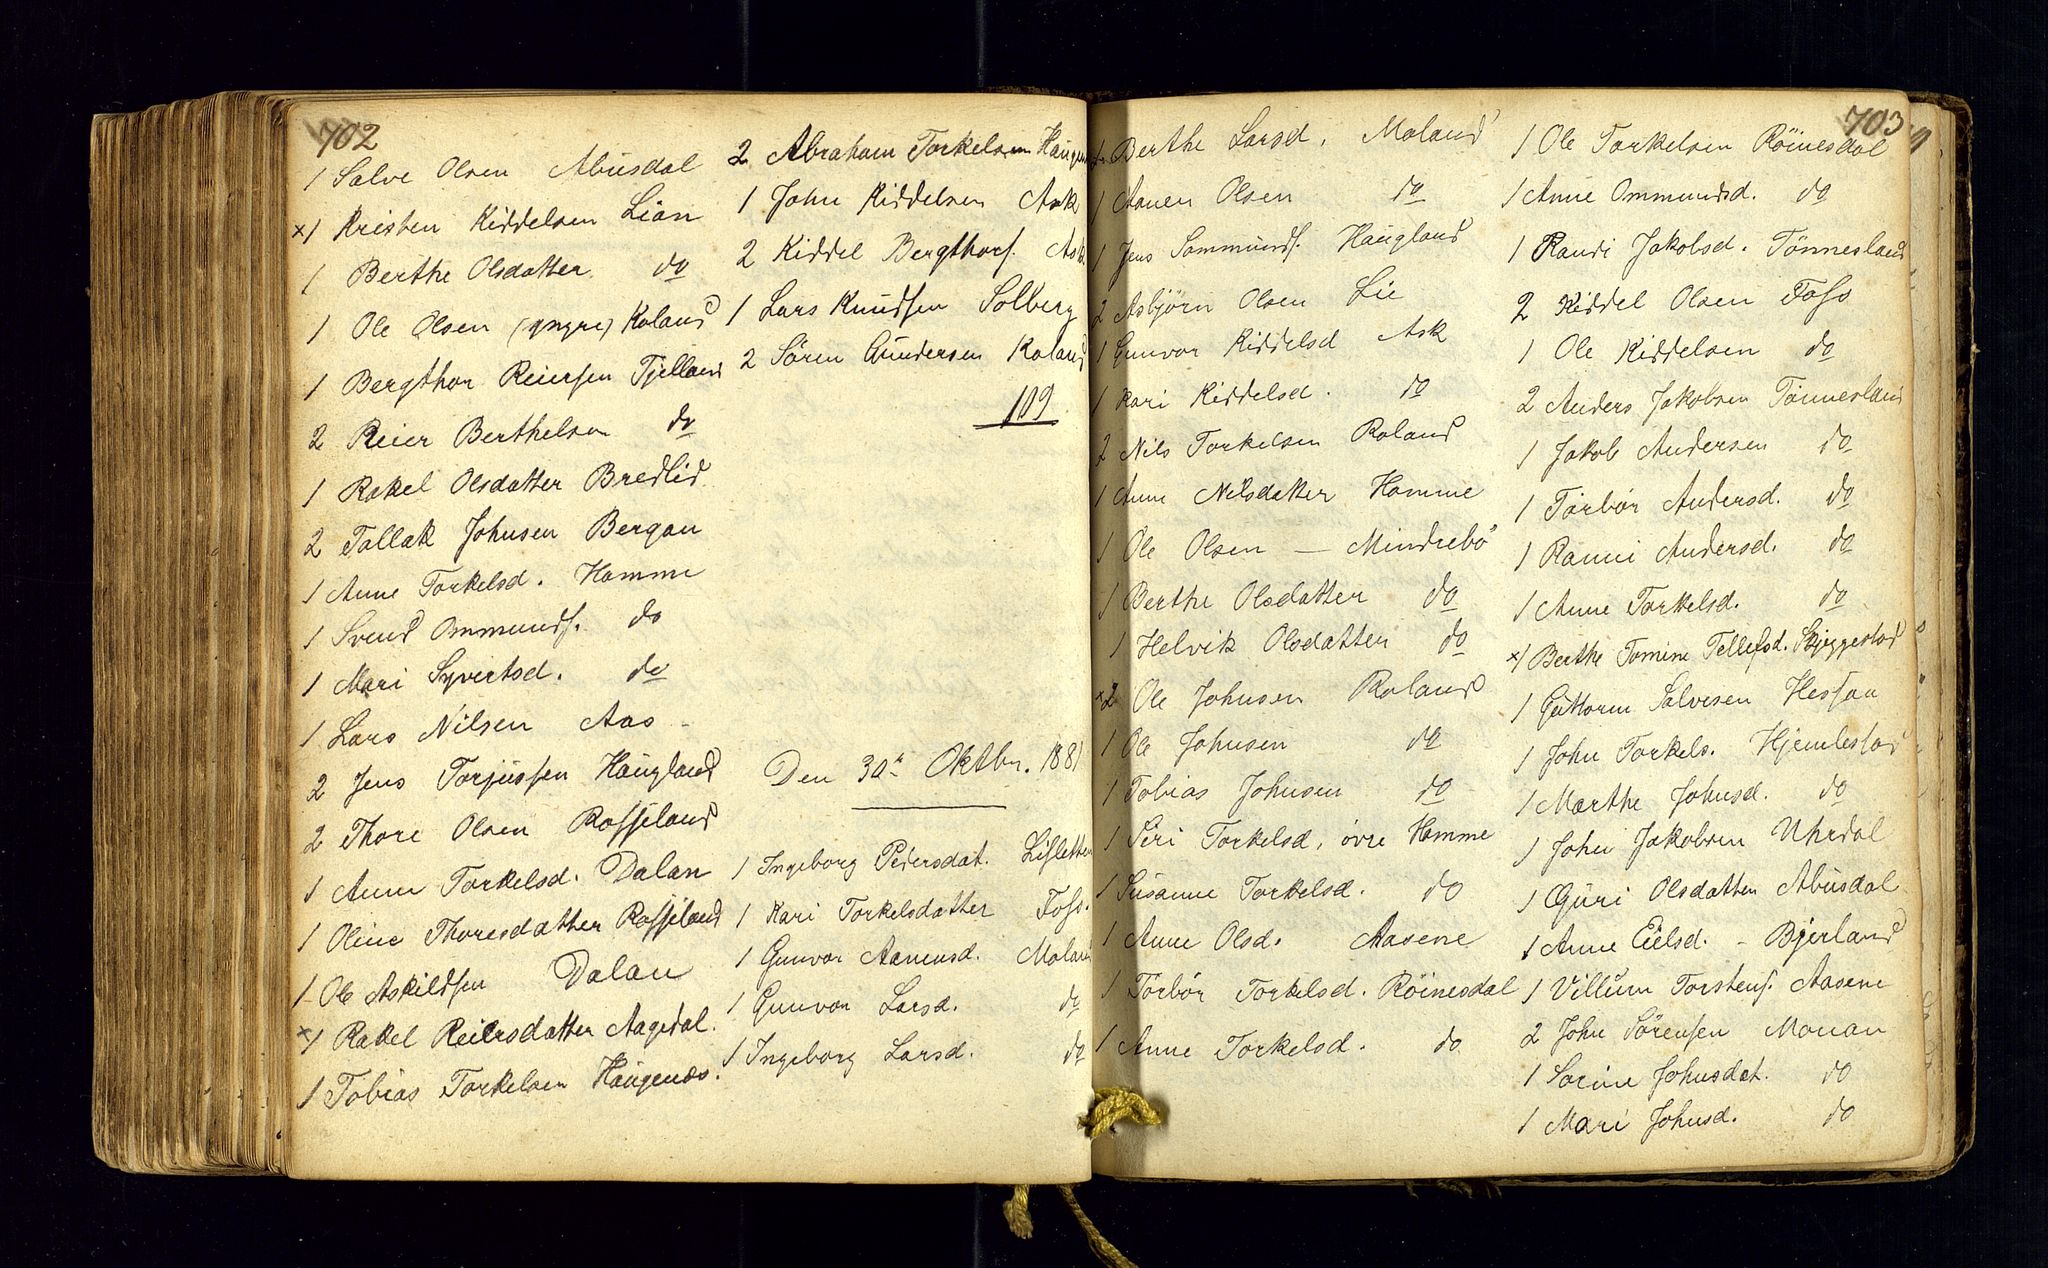 702
1 Salve Olsen Abusdal
×1 Kristen Kiddelsen Lian
1 Berthe Olsdatter do
1 Ole Olsen (yngre) Roland
1 Bergthor Reiersen Tjelland
2 Reier Berthelsen do
1 Rakel Olsdatter Bredlid
2 Tallak Johnsen Bergan
1 Anne Torkelsd. Homme
1 Svend Ommunds. do
1 Mari Syvertsd. do
1 Lars Nilsen Aas
2 Jens Torjussen Haugland
2 Thore Olsen Rossjeland
1 Anne Torkelsd. Dalan
1 Oline Thoresdatter Rossjeland
1 Ole Askildsen Dalan
×1 Rakel Reiersdatter Aagedal.
1 Tobias Torkelsen Haugenæs.
2 Abraham Torkelsen
1 John Kiddelsen Ask
2 Kiddel Bergthors. Ask
1 Lars Knudsen Solberg
2 Sören Gundersen Roland
109
Den 30te Oktbr. 1881
1 Ingeborg Pedersdat.
1 Kari Torkelsdatter Foss.
1 Gunvor Aanensd. Moland
1 Gunvor Larsd. do
1 Ingeborg Larsd. do
703
1 Berthe Larsd. Moland
1 Aanen Olsen do
1 Jens Sommunds. Haugland
2 Asbjörn Olsen Lie
1 Gunvor Kiddelsd Ask
1 Kari Kiddelsd. do
2 Nils Torkelsen Roland
1 Anne Nilsdatter Homme
1 Ole Olsen — Mindrebö
1 Berthe Olsdatter do
1 Helvik Olsdatter do
×2 Ole Johnsen Roland
1 Ole Johnsen do
1 Tobias Johnsen do
1 Siri Torkelsd, övre Homme
1 Susanne Torkelsd. do
1 Anne Olsd. Aasene
1 Törbör Torkelsd. Röinesdal
1 Anne Torkelsd. do
1 Ole Torkelsen Röinesdal
1 Anne Ommundsd. do
1 Randi Jakobsd. Tönnesland
2 Kiddel Olsen Foss
1 Ole Kiddelsen do
2 Anders Jakobsen Tönnesland
1 Jakob Andersen do
1 Törbör Andersd. do
1 Rannei Andersd. do
1 Anne Torkelsd. do
×1 Berthe Tomine Tellefsd. Skjeggestad
1 Guttorm Salvesen Hessaa
1 John Torkels. Hjemlestad
1 Marthe Johnsd. do
1 John Jakobsen Uhrdal
1 Guri Olsdatter Abusdal
1 Anne Eielsd. - Bjerland
1 Villum Torstens. Aasene
2 John Sörensen Monan
1 Sorine Johnsdat. do
1 Mari Johnsd. do